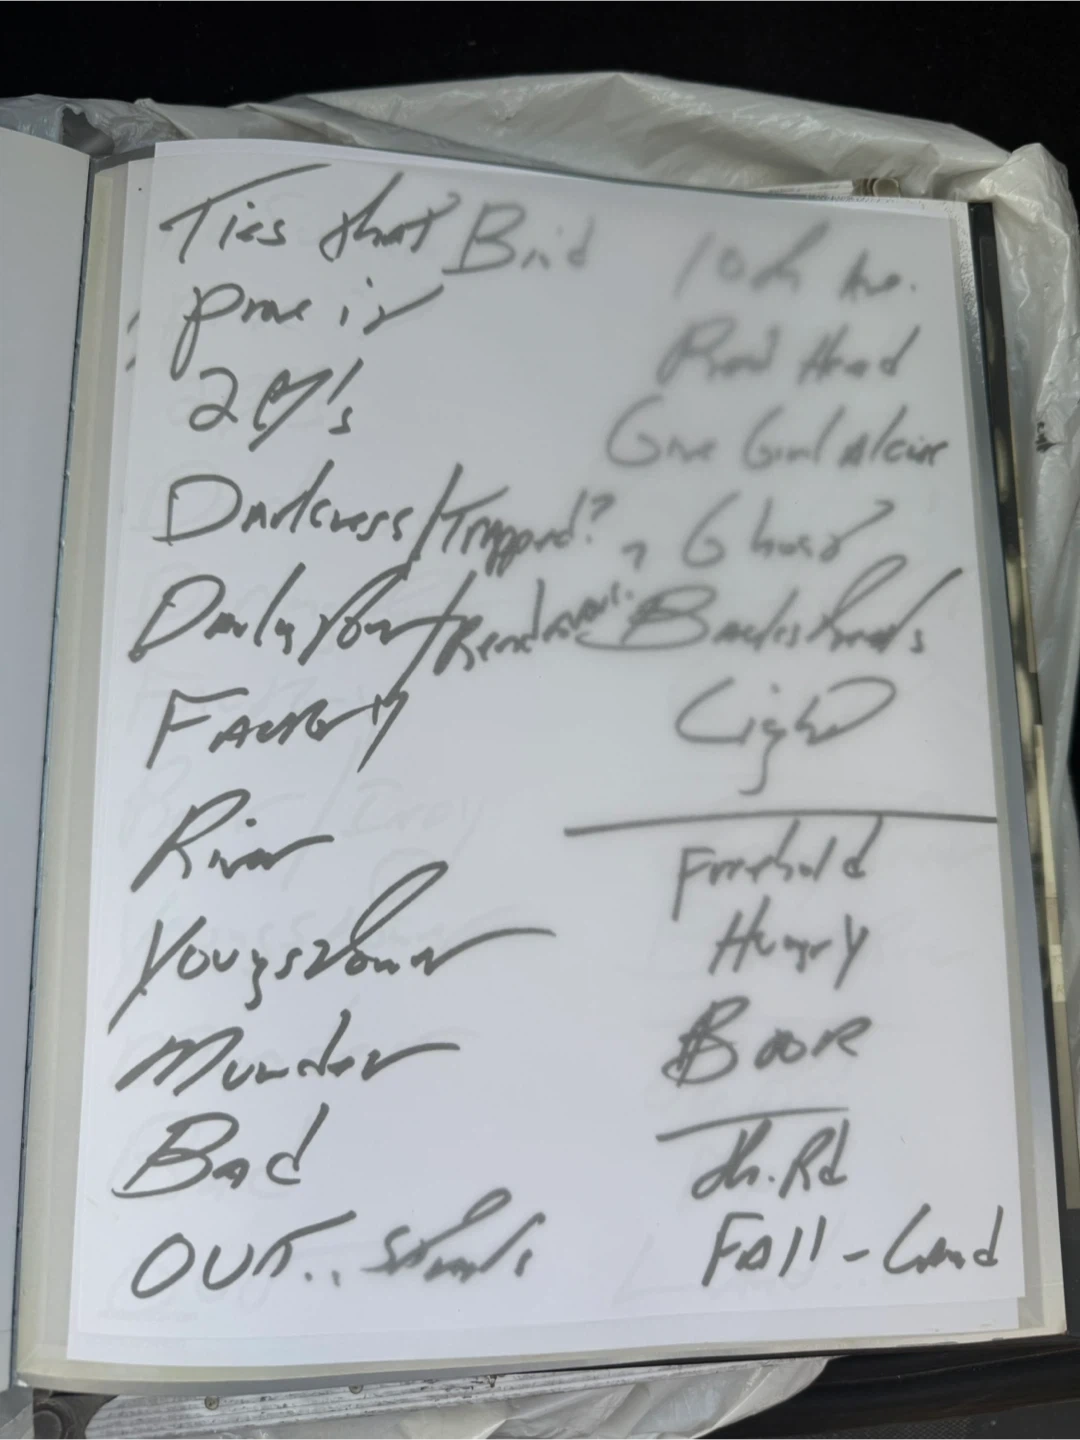 Ties that Bind
Prove it
2 ♡'s
Darkness/Trapped?
Darlington/Rendezvous?
Factory
River
Youngstown
Murder
Bad
OUT.. Streets
10th Ave.
Pow Head
Give Girl A Kiss
, Ghost
Backstreets
Light
Freehold
Hungry
Book
Th. Rd
FAll - Land